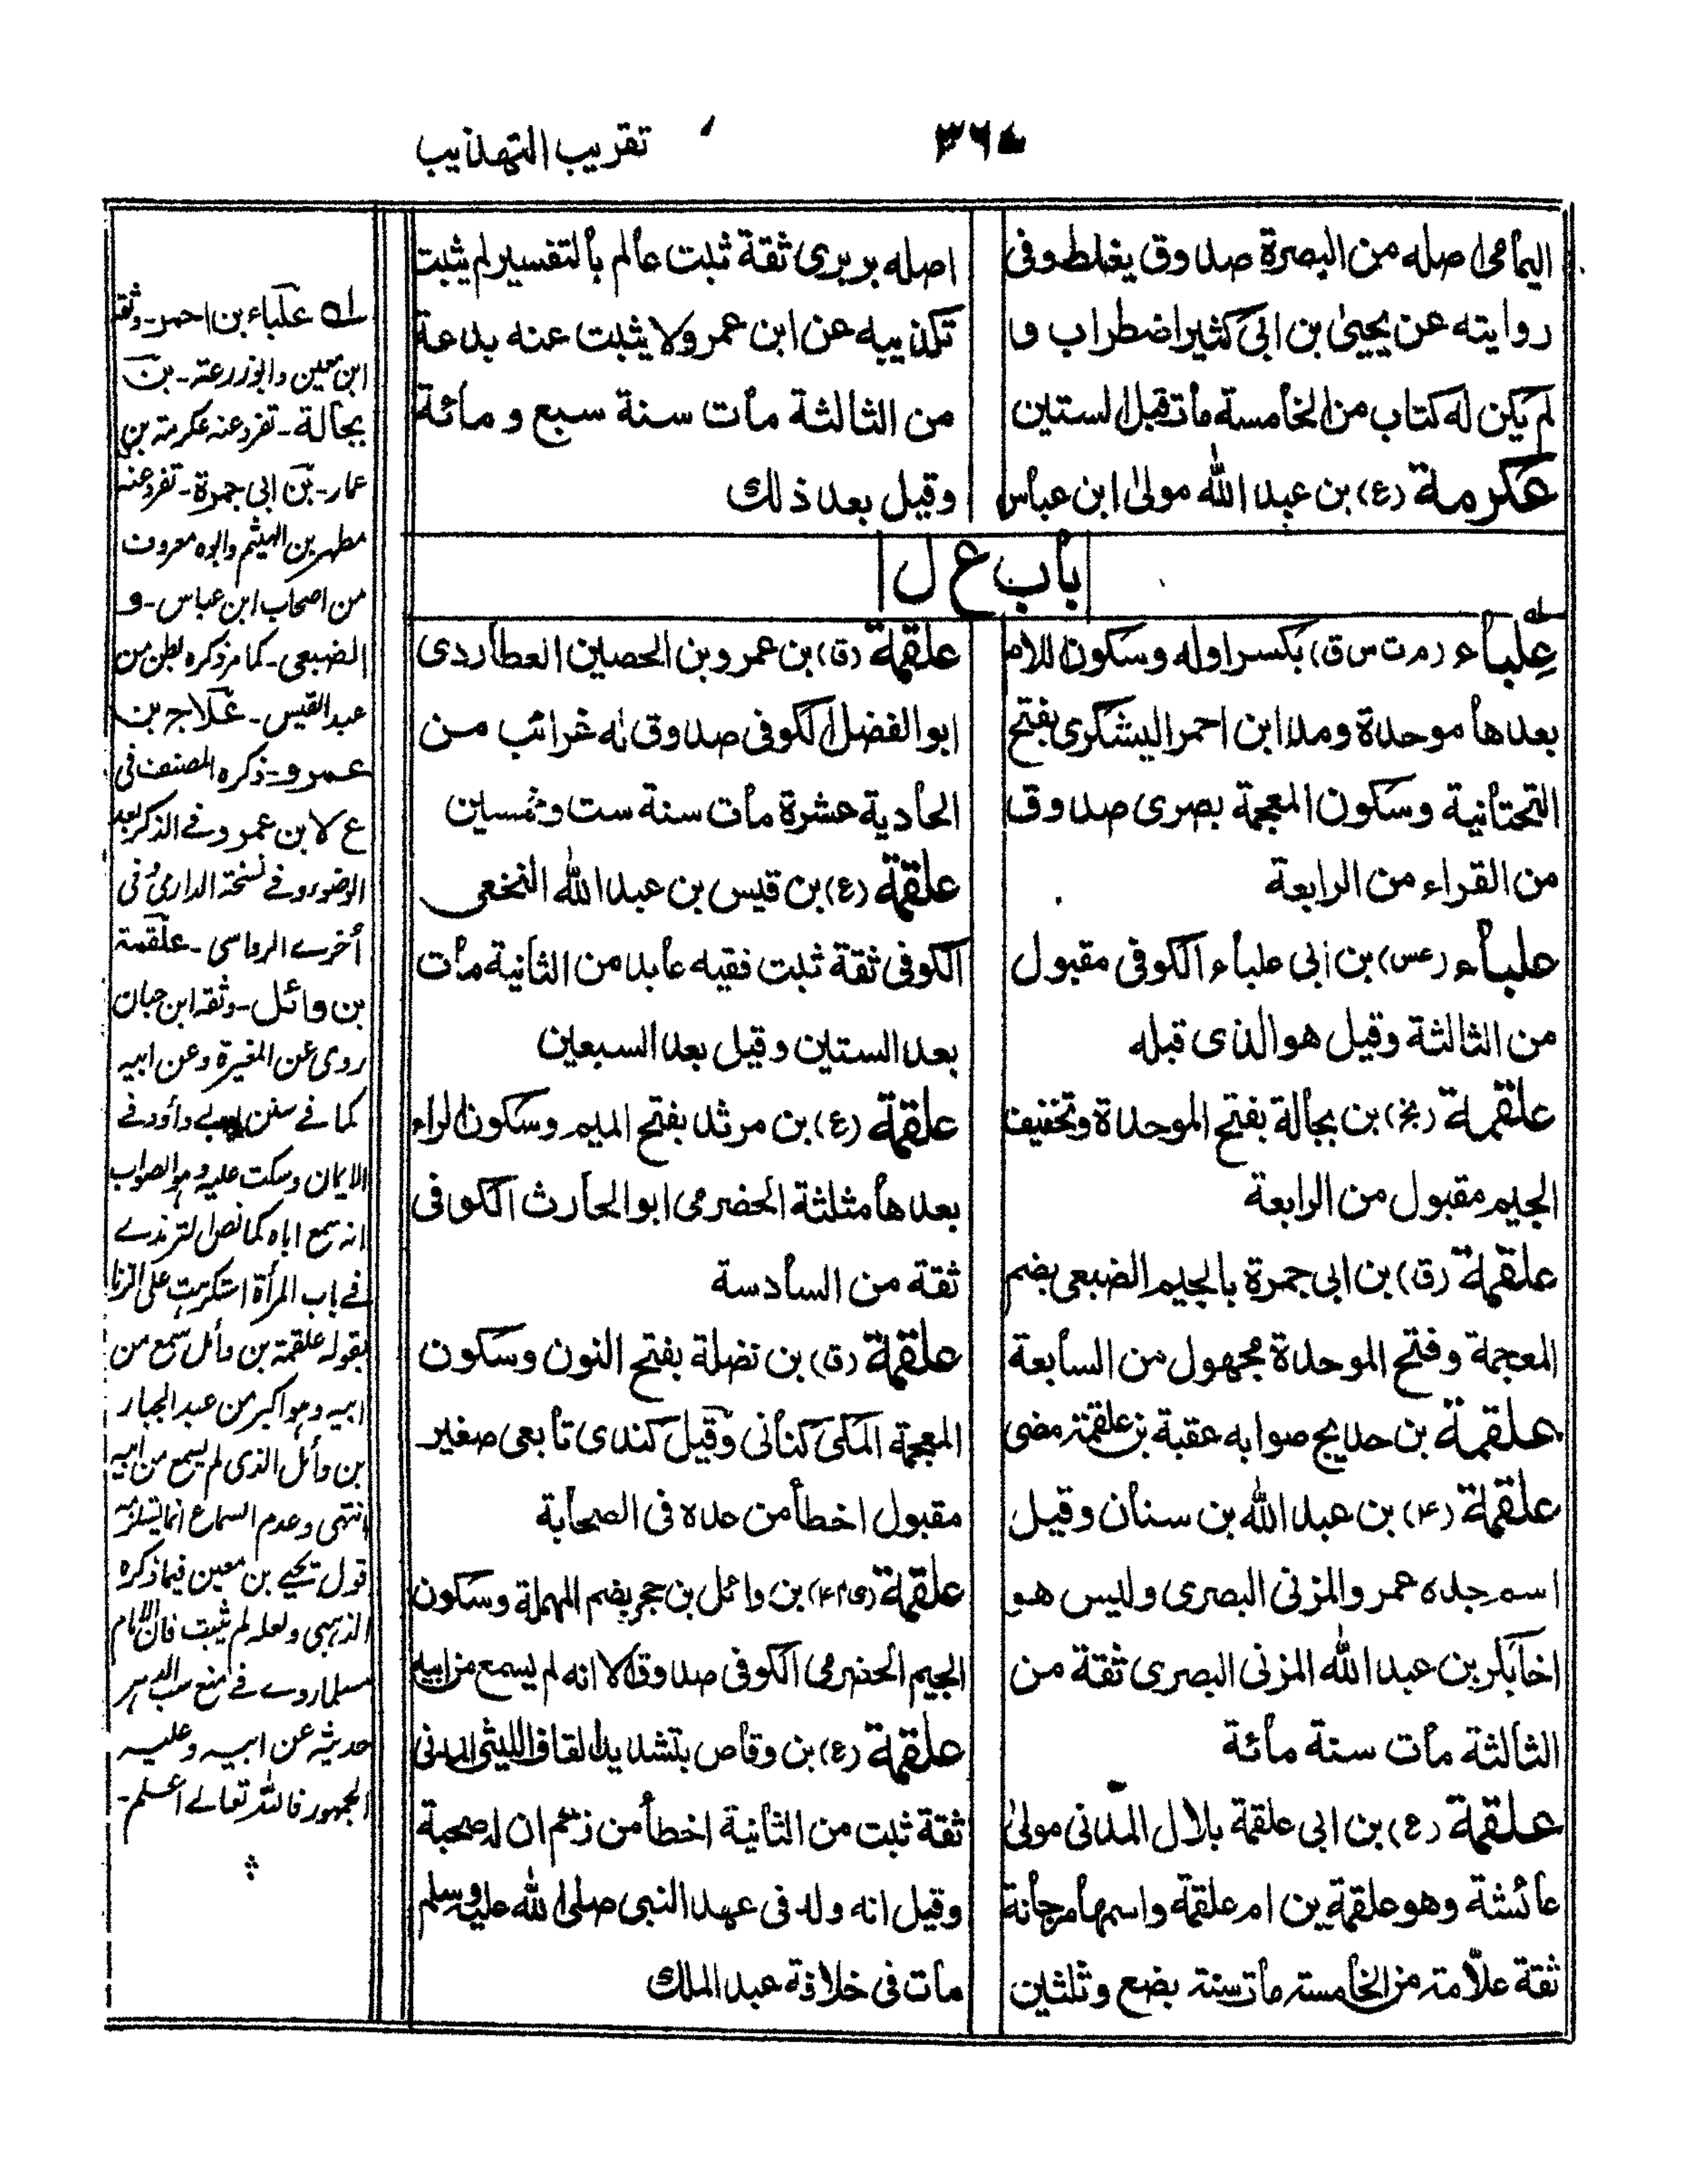 تقريب التهذيب
اليمامى اصله من البصرة صدوق يغلط وفى
روايته عن يحيىٰ بن ابى كثير اضطراب و
لم يكن له كتاب من الخامسة مات قبل الستين
عكرمة (ع) بن عبد الله مولىٰ ابن عباس
اصله بربرى ثقة ثبت عالم بالتفسير لم يثبت
تكذيبه عن ابن عمر ولا يثبت عنه بدعة
من الثالثة مات سنة سبع ومائة
وقيل بعد ذلك
باب ع ل
عِلباء (م ت س ق) بكسر اوله وسكون اللام
بعدها موحدة ومد ابن احمر اليشكرى بفتح
التحتانية وسكون المعجمة بصرى صدوق
من القراء من الرابعة
علباء (عس) بن ابى علباء الكوفى مقبول
من الثالثة وقيل هو الذى قبله
علقمة (بخ) بن بجالة بفتح الموحدة وتخفيف
الجيم مقبول من الرابعة
علقمة (ق) بن ابى جمرة بالجيم الضبعى بضم
المعجمة وفتح الموحدة مجهول من السابعة
علقمة بن حديج صوابه عقبة بن علقمة مضى
علقمة (۴) بن عبد الله بن سنان وقيل
اسم جده عمرو المزنى البصرى وليس هو
اخا بكر بن عبد الله المزنى البصرى ثقة من
الثالثة مات سنة مائة
علقمة (ع) بن ابى علقمة بلال المدنى مولىٰ
عائشة وهو علقمة بن ام علقمة واسمها مرجانة
ثقة علّامة من الخامسة مات سنة بضع وثلثين
علقمة (ق) بن عمرو بن الحصين العطاردى
ابو الفضل الكوفى صدوق له غرائب من
الحادية عشرة مات سنة ست وخمسين
علقمة (ع) بن قيس بن عبد الله النخعى
الكوفى ثقة ثبت فقيه عابد من الثانية مات
بعد الستين وقيل بعد السبعين
علقمة (ع) بن مرثد بفتح الميم وسكون الراء
بعدها مثلثة الحضرمى ابو الحارث الكوفى
ثقة من السادسة
علقمة (ق) بن نضلة بفتح النون وسكون
المعجمة المكى كنانى وقيل كندى تابعى صغير
مقبول اخطأ من عده فى الصحابة
علقمة (ى م ۴) بن وائل بن حجر بضم المهملة وسكون
الجيم الحضرمى الكوفى صدوق الا انه لم يسمع من ابيه
علقمة (ع) بن وقاص بتشديد القاف الليثى المدنى
ثقة ثبت من الثانية اخطأ من زعم ان له صحبة
وقيل انه ولد فى عهد النبى صلى الله عليه وسلم
مات فى خلافة عبد الملك
له علباء بن احمر - وثقه
ابن معين وابو زرعة - بن
بجالة - تفرد عنه عكرمة بن
عمار - بن ابى جمرة - تفرد عنه
مطهر بن الهيثم وابوه معروف
من اصحاب ابن عباس - و
الضبعى - كما مر ذكره بطن من
عبد القيس - علاج بن
عمرو - ذكره المصنف فى
ع لا بن عمرو وفى الذكر بعد
الوضوء وفى نسخة الدارمى وفى
أخرى الرواسى - علقمة
بن وائل - وثقه ابن حبان
روى عن المغيرة وعن ابيه
كما فى سنن ابى داؤد فى
الايمان وسكت عليه وهو الصواب
انه سمع اباه كما نص الترمذى
فى باب المرأة استكرهت على الزنا
بقوله علقمة بن وائل سمع من
ابيه وهو اكبر من عبد الجبار
بن وائل الذى لم يسمع من ابيه
انتهى وعدم السماع انما
قول يحيى بن معين فيما ذكره
الذهبى ولعله لم يثبت فان الامام
مسلما روى فى منع سب الدهر
حديثه عن ابيه وعليه
الجمهور فالله تعالى اعلم -